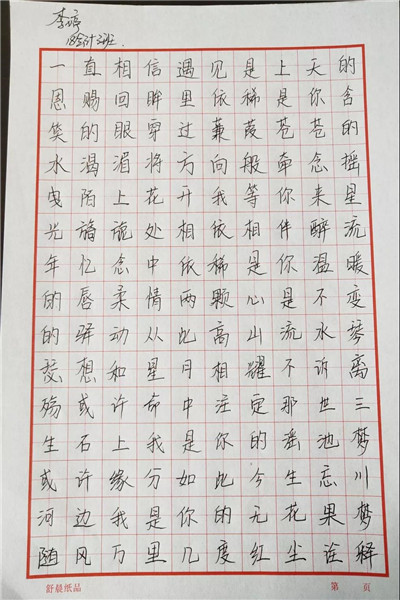 李婷
18会计3班.
一直相信遇见是上天的
恩赐回眸里依稀是你含
笑的眼穿过蒹葭苍苍的
水湄将方向般牵念摇
曳陌上花开我等你来星
光旖旎处相依相伴醉流
年忆念中依稀是你温暖
的唇柔情两颗心是不变
的驿动从此高山流水琴
瑟想和星月相耀不诉离
殇或许命中注定那世三
生石上我是你的瑶池梦
或许缘分如此今生忘川
河边我是你的无花果梦
随风万里几度红尘诠释
舒晨纸品
第 页